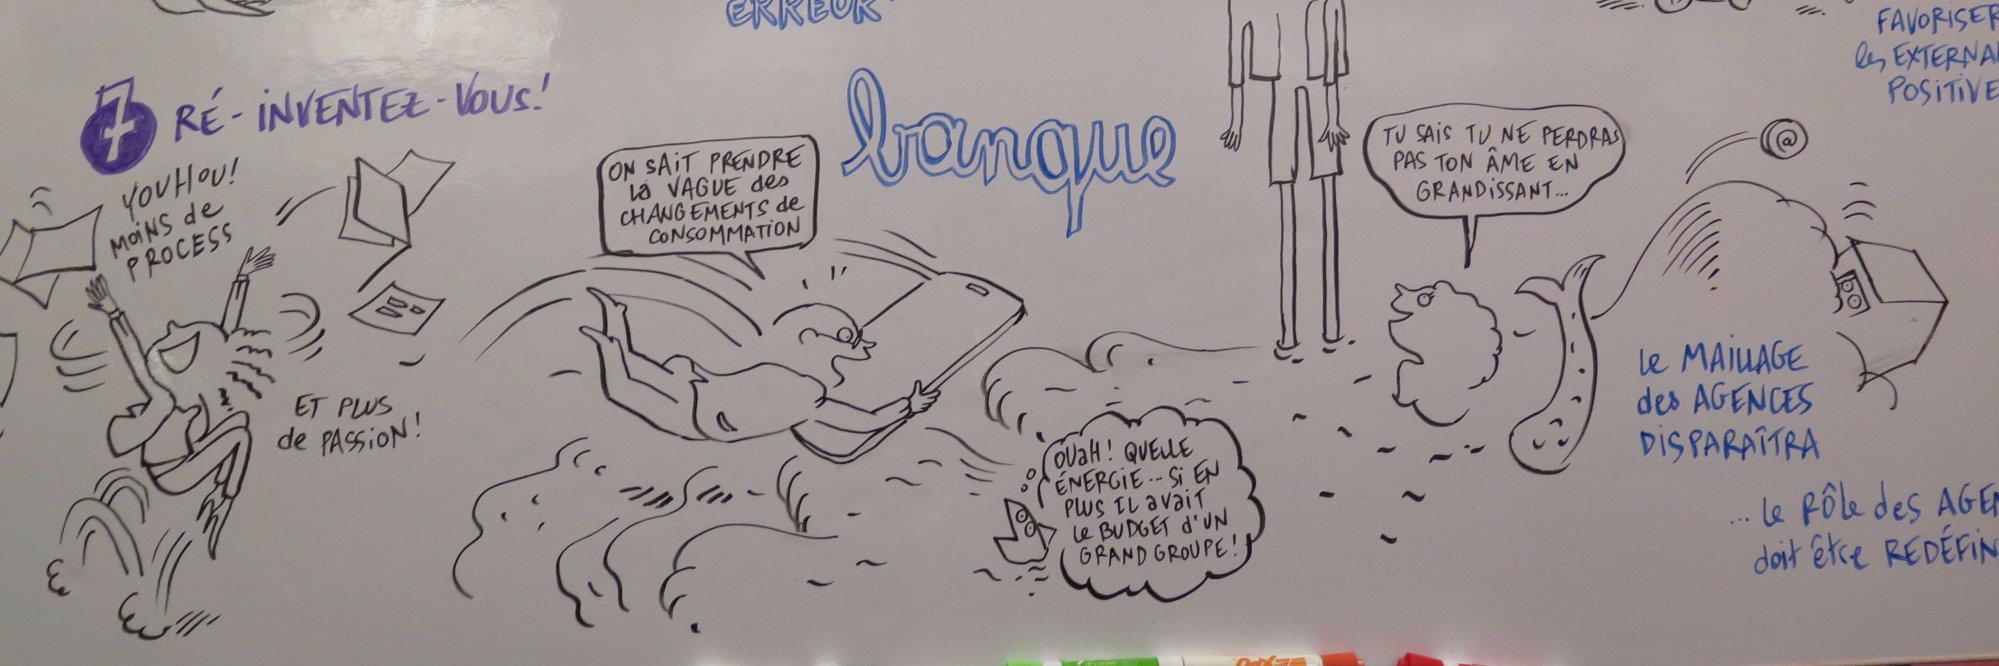 ERREUR
FAVORISER
les EXTERNA
POSITIVE
RÉ-INVENTEZ-VOUS!
YOUHOU!
MOINS de
PROCESS
ET PLUS
de PASSION!
ON SAIT PRENDRE
la VAGUE des
CHANGEMENTS de
CONSOMMATION
banque
TU SAIS TU NE PERDRAS
PAS TON ÂME EN
GRANDISSANT...
@
OUaH! QUELLE
ÉNERGIE... SI EN
PLUS IL avait
le BUDGET d'UN
GRAND GROUPE!
le MAILLAGE
des AGENCES
DISPARAÎTRA
... le RÔle des AGEN
doit être REDÉFIN